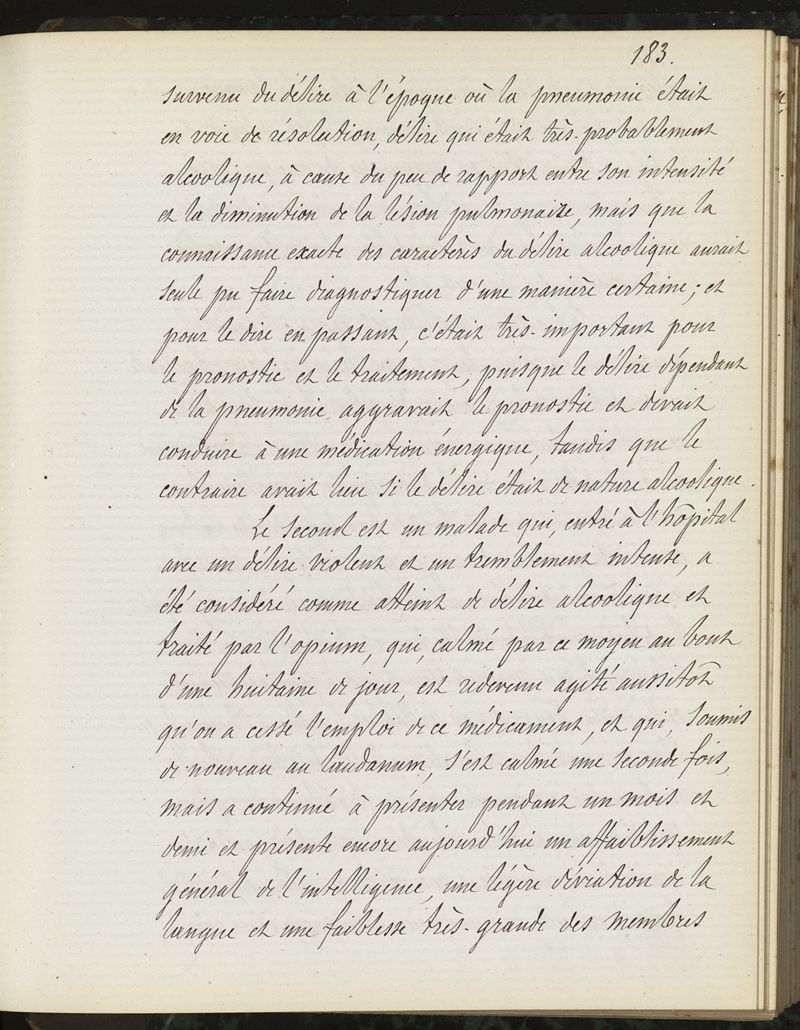 183.
survenu du délire à l'époque où la pneumonie était
en voie de résolution, délire qui était très-probablement
alcoolique, à cause du peu de rapport entre son intensité
et la diminution de la lésion pulmonaire, mais que la
connaissance exacte des caractères du délire alcoolique aurait
seule pu faire diagnostiquer d'une manière certaine; et
pour le dire en passant, c'était très-important pour
le pronostic et le traitement, puisque le délire dépendant
de la pneumonie aggravait le pronostic et devait
conduire à une médication énergique, tandis que le
contraire avait lieu si le délire était de nature alcoolique.
Le second est un malade qui, entré à l'hôpital
avec un délire violent et un tremblement intense, a
été considéré comme atteint de délire alcoolique et
traité par l'opium, qui, calmé par ce moyen au bout
d'une huitaine de jour, est redevenu agité aussitôt
qu'on a cessé l'emploi de ce médicament, et qui, soumis
de nouveau au laudanum, s'est calmé une seconde fois,
mais a continué à présenter pendant un mois et
demi et présente encore aujourd'hui un affaiblissement
général de l'intelligence, une légère déviation de la
langue et une faiblesse très-grande des membres